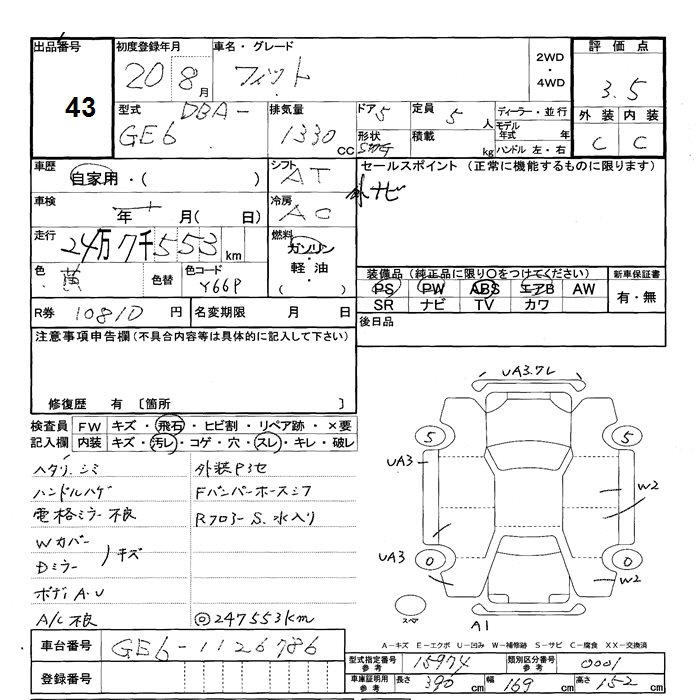 出品番号
43
初度登録年月
20 8月
車名・グレード
フィット
2WD
・
4WD
評価点
3.5
外装 内装
C C
型式 DBA-
GE6
排気量
1330 CC
ドア 5
定員 5人
形状
積載 kg
ディーラー・並行
モデル年式 年
ハンドル 左・右
車歴
自家用・( )
シフト
AT
セールスポイント (正常に機能するものに限ります)
ナビ
車検
年 月( 日)
冷房
AC
走行
24万7千553km
燃料
ガソリン
・
軽油
( )
色
黄
色替
色コード
Y66P
装備品 (純正品に限り○をつけてください)
PS PW ABS エアB AW
SR ナビ TV カワ
新車保証書
有・無
R券 10810 円
名変期限 月 日
後日品
注意事項申告欄(不具合内容等は具体的に記入して下さい)
修復歴 有 [箇所 ]
検査員記入欄
FW キズ・飛石・ヒビ割・リペア跡・×要
内装 キズ・汚レ・コゲ・穴・スレ・キレ・破レ
ヘタリ シミ
ハンドルハゲ
電格ミラー不良
Wカバー
Dミラー
キズ
ボディA.U
A/C不良
外装Pヨセ
Fバンパーホースシフ
Rフロアー S. 水入り
◎247553km
UA3.ワレ
5
5
UA3
W2
UA3
0
0
W2
スペア
A1
A-キズ E-エクボ U-凹み W-補修跡 S-サビ C-腐食 XX-交換済
車台番号
GE6-1126786
登録番号
型式指定番号 参考 15974
類別区分番号 参考 0001
車庫証明用 参考 長さ 390 cm 幅 169 cm 高さ 152 cm